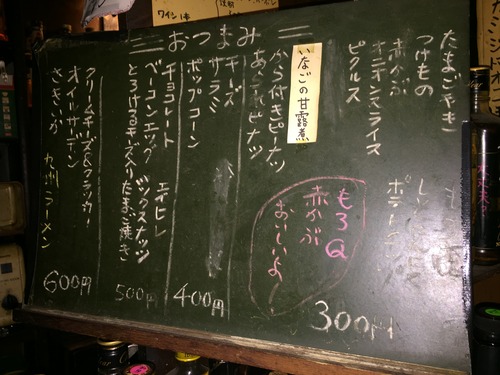 おつまみ
たまごやき
つけもの
赤かぶ
オニオンスライス
ピクルス
いなごの甘露煮
から付きピーナツ
もろQ
赤かぶ
おいしいよ
300円
チーズ
サラミ
ポップコーン
400円
チョコレート
エイヒレ
ベーコンエッグ
ミックスナッツ
とろけるチーズ入りたまご焼き
500円
クリームチーズ&クラッカー
オイルサーデン
さきいか
九州ラーメン
600円